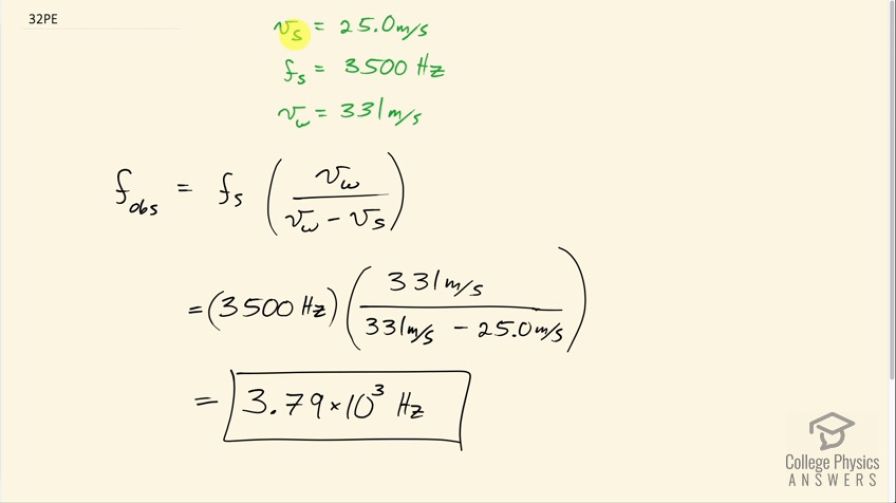 32PE
v_s = 25.0 m/s
f_s = 3500 Hz
v_w = 331 m/s
f_obs = f_s (v_w / (v_w - v_s))
= (3500 Hz) (331 m/s / (331 m/s - 25.0 m/s))
= 3.79 × 10³ Hz
College Physics
ANSWERS